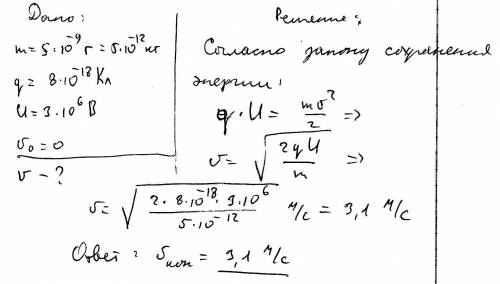 Дано:
m = 5·10⁻⁹ г = 5·10⁻¹² кг
q = 8·10⁻¹⁸ Кл
U = 3·10⁶ В
v₀ = 0
v – ?
Решение:
Согласно закону сохранения
энергии:
q·U = mv²/2 =>
v = √(2qU/m) =>
v = √(2·8·10⁻¹⁸·3·10⁶/5·10⁻¹²) м/с = 3,1 м/с
Ответ: v кон = 3,1 м/с